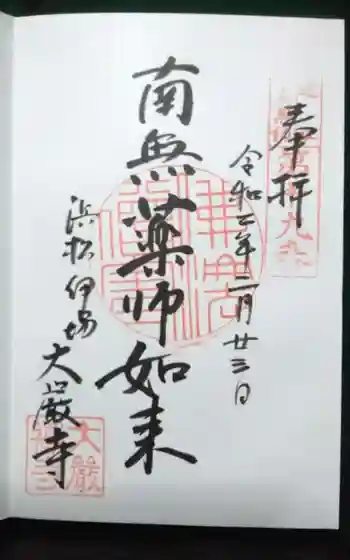 奉拝
令和二年二月廿三日
南無薬師如来
浜松伊場
大巌寺